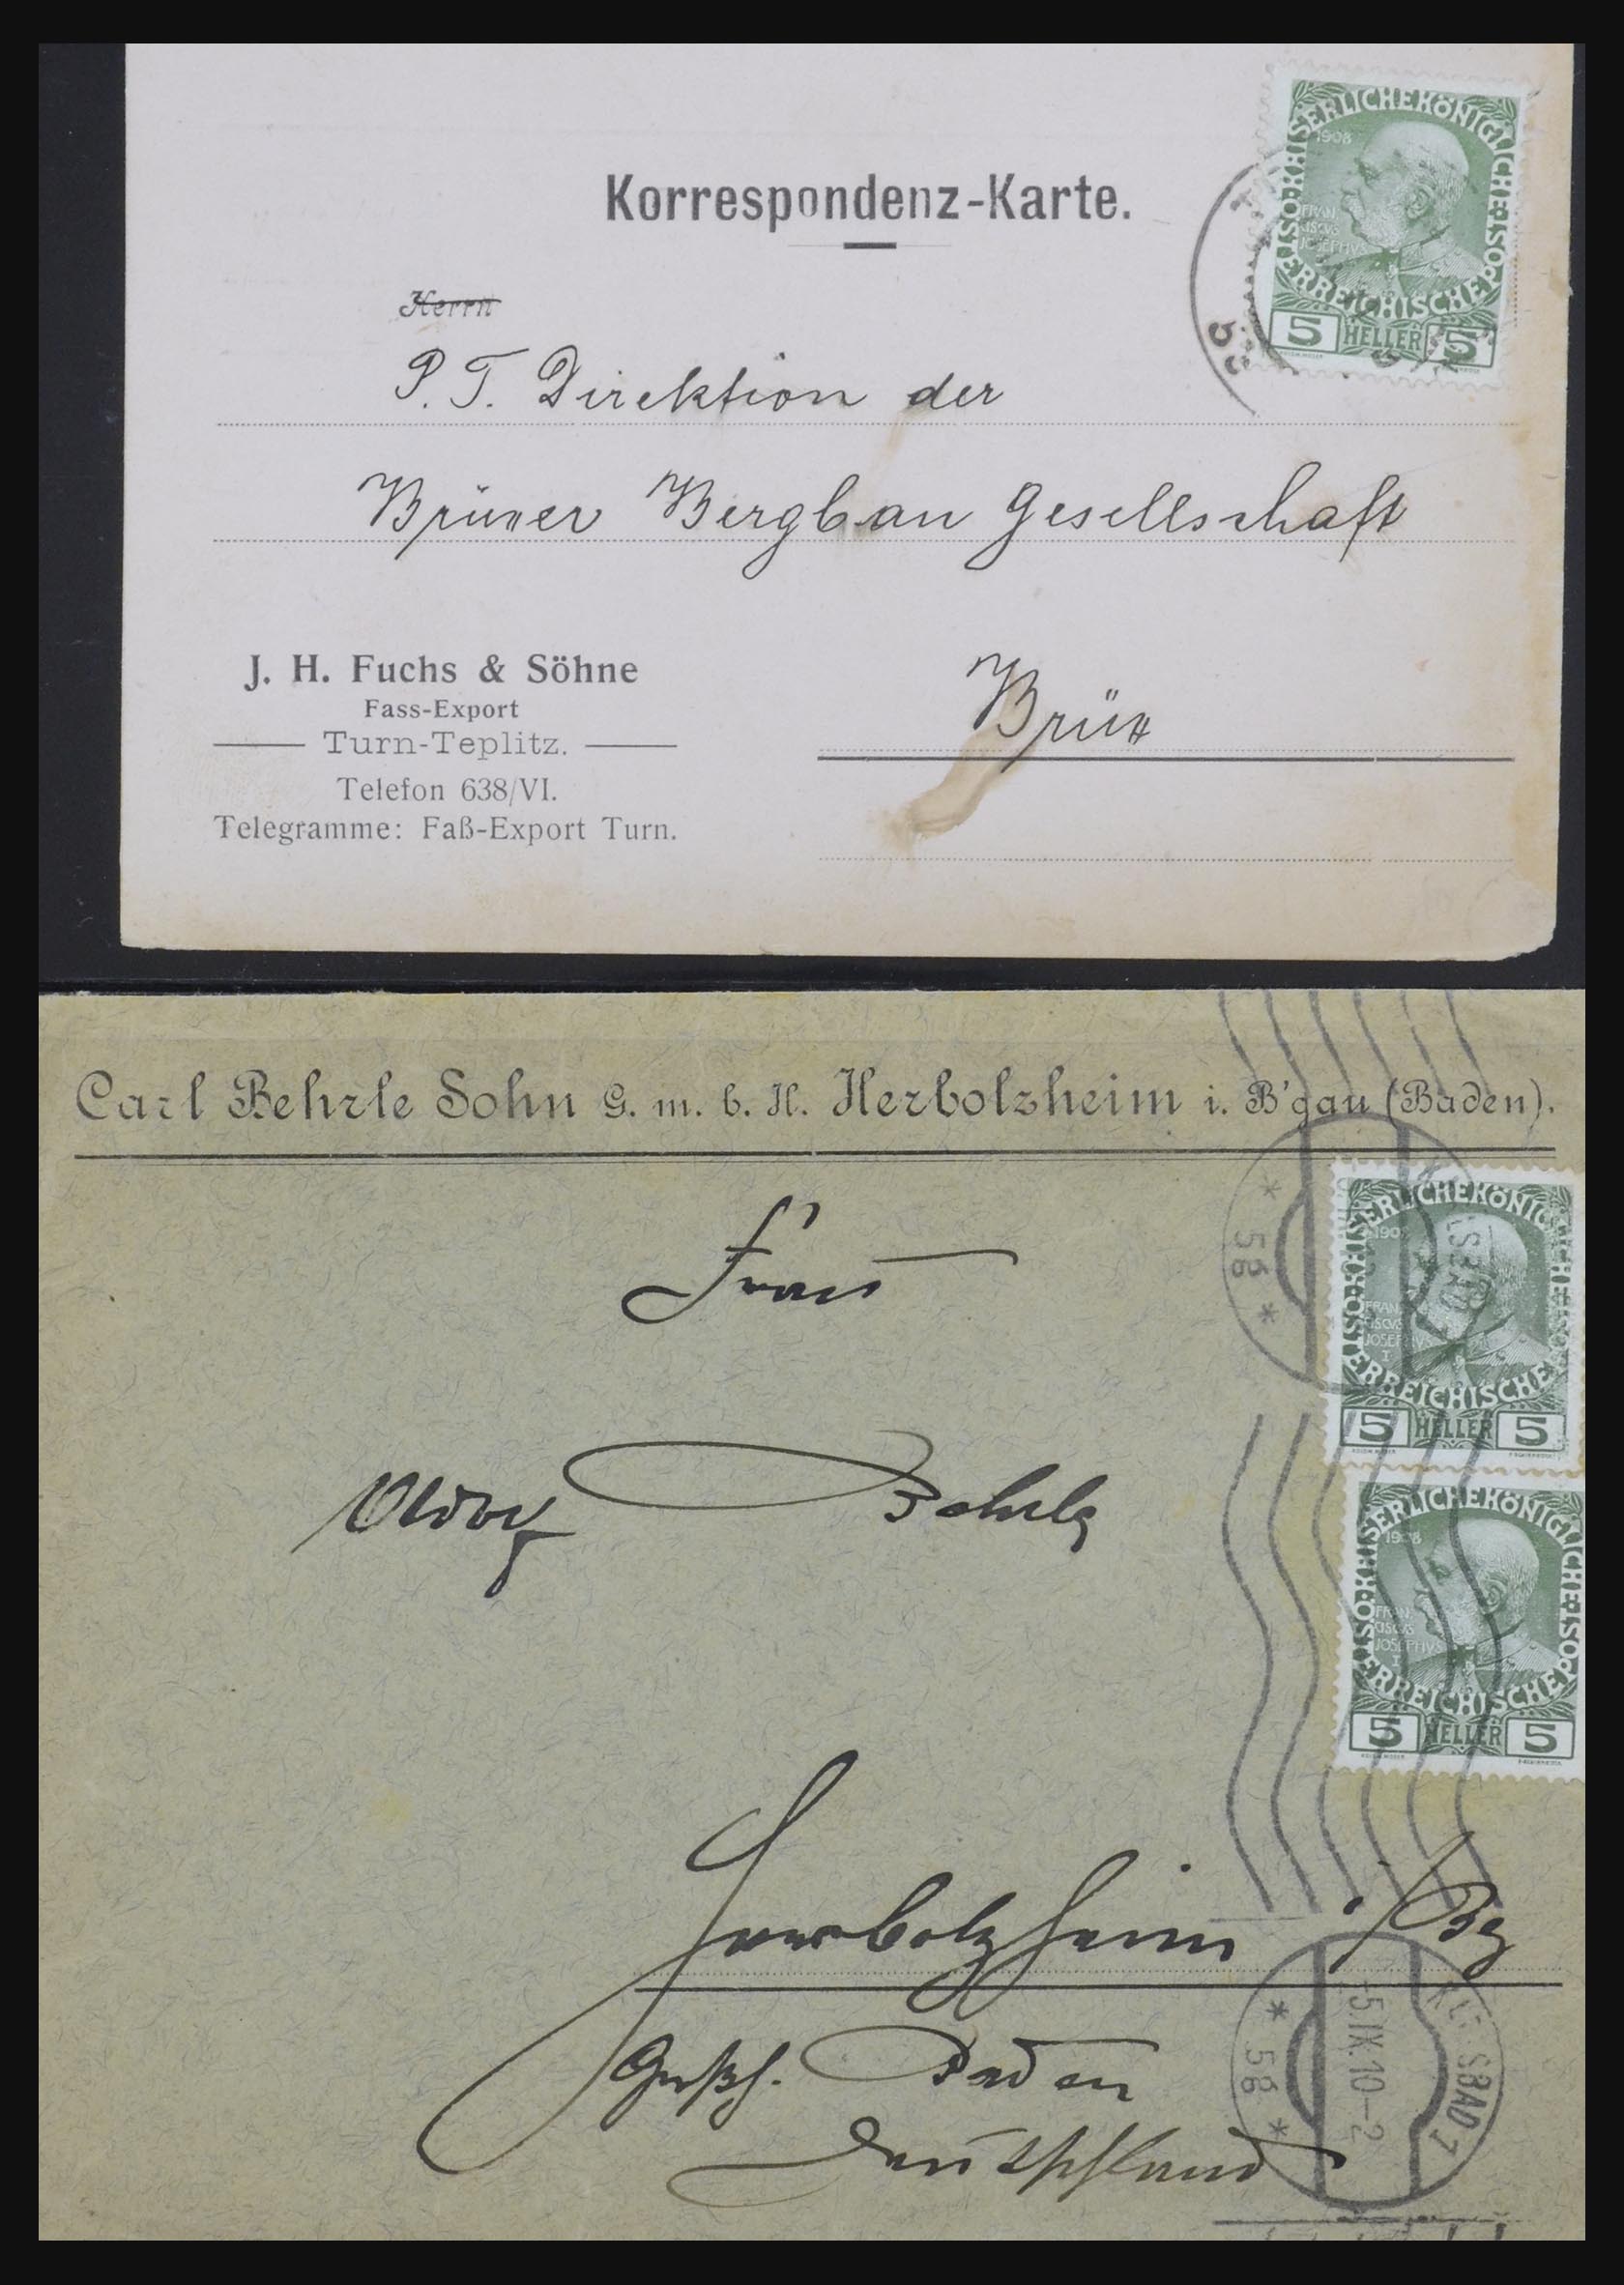 Korrespondenz-Karte.
Herrn
P. T. Direktion der
Brüxer Bergbau Gesellschaft
Brüx
J. H. Fuchs & Söhne
Fass-Export
Turn-Teplitz.
Telefon 638/VI.
Telegramme: Faß-Export Turn.
KAISERLICHE KÖNIGLICHE ÖSTERREICHISCHE POST
1908
FRAN
CISCVS
JOSEPHVS
5 HELLER 5
Carl Behrle Sohn G. m. b. H. Herbolzheim i. B'gau (Baden).
Frau
Behrle
Herbolzheim i/Bg
Großh. Baden
Deutschland
KAISERLICHE KÖNIGLICHE ÖSTERREICHISCHE
FRAN
CISCVS
JOSEPHVS
I
5 HELLER 5
KAISERLICHE KÖNIGLICHE ÖSTERREICHISCHE POST
1908
FRAN
CISCVS
JOSEPHVS
I
5 HELLER 5
* 56 *
KARLSBAD 1
-5.IX.10-2
* 56 *